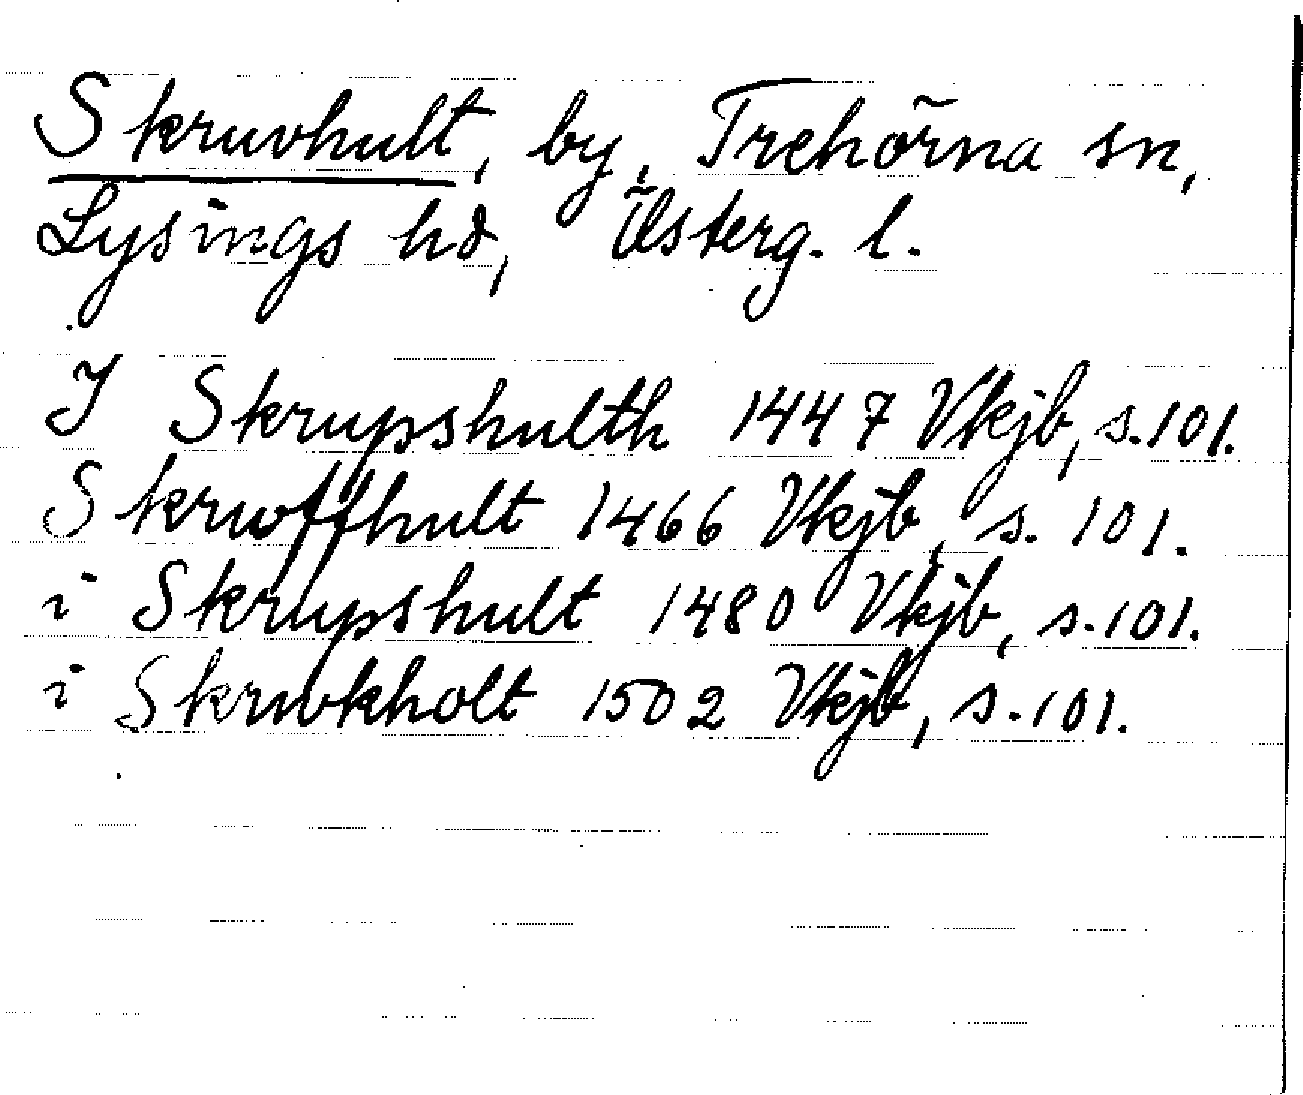 Skruvhult, by, Trehörna sn,
Lysings hd, Österg. l.
I Skrupshulth 1447 Vkjb, s. 101.
Skruffhult 1466 Vkjb, s. 101.
i Skrupshult 1480 Vkjb, s. 101.
i Skrwkholt 1502 Vkjb, s. 101.